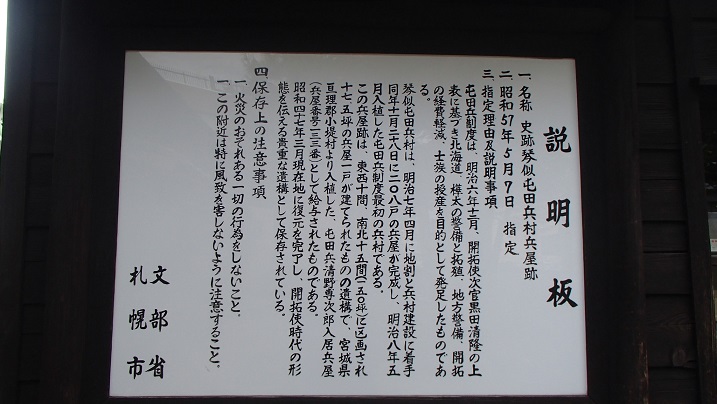 説明板
一. 名称 史跡琴似屯田兵村兵屋跡
二. 昭和57年5月7日 指定
三. 指定理由及説明事項
屯田兵制度は、明治六年十一月、開拓使次官黒田清隆の上
表に基づき北海道、樺太の警備と拓殖、地方警備、開拓
の経費軽減、士族の授産を目的として発足したものであ
る。
琴似屯田兵村は、明治七年四月に地割と兵村建設に着手
同年十一月二八日に二〇八戸の兵屋が完成し、明治八年五
月入植した屯田兵制度最初の兵村である。
この兵屋跡は、東西十間、南北十五間(一五〇坪)に区画され
十七、五坪の兵屋一戸が建てられたものの遺構で、宮城県
亘理郡小堤村より入植した、屯田兵清野専次郎入居兵屋
(兵屋番号一三三番)として給与されたものである。
昭和四七年三月現在地に復元を完了し、開拓使時代の形
態を伝える貴重な遺構として保存されている。
四. 保存上の注意事項
一. 火災のおそれある一切の行為をしないこと。
一. この附近は特に風致を害しないように注意すること。
文部省
札幌市